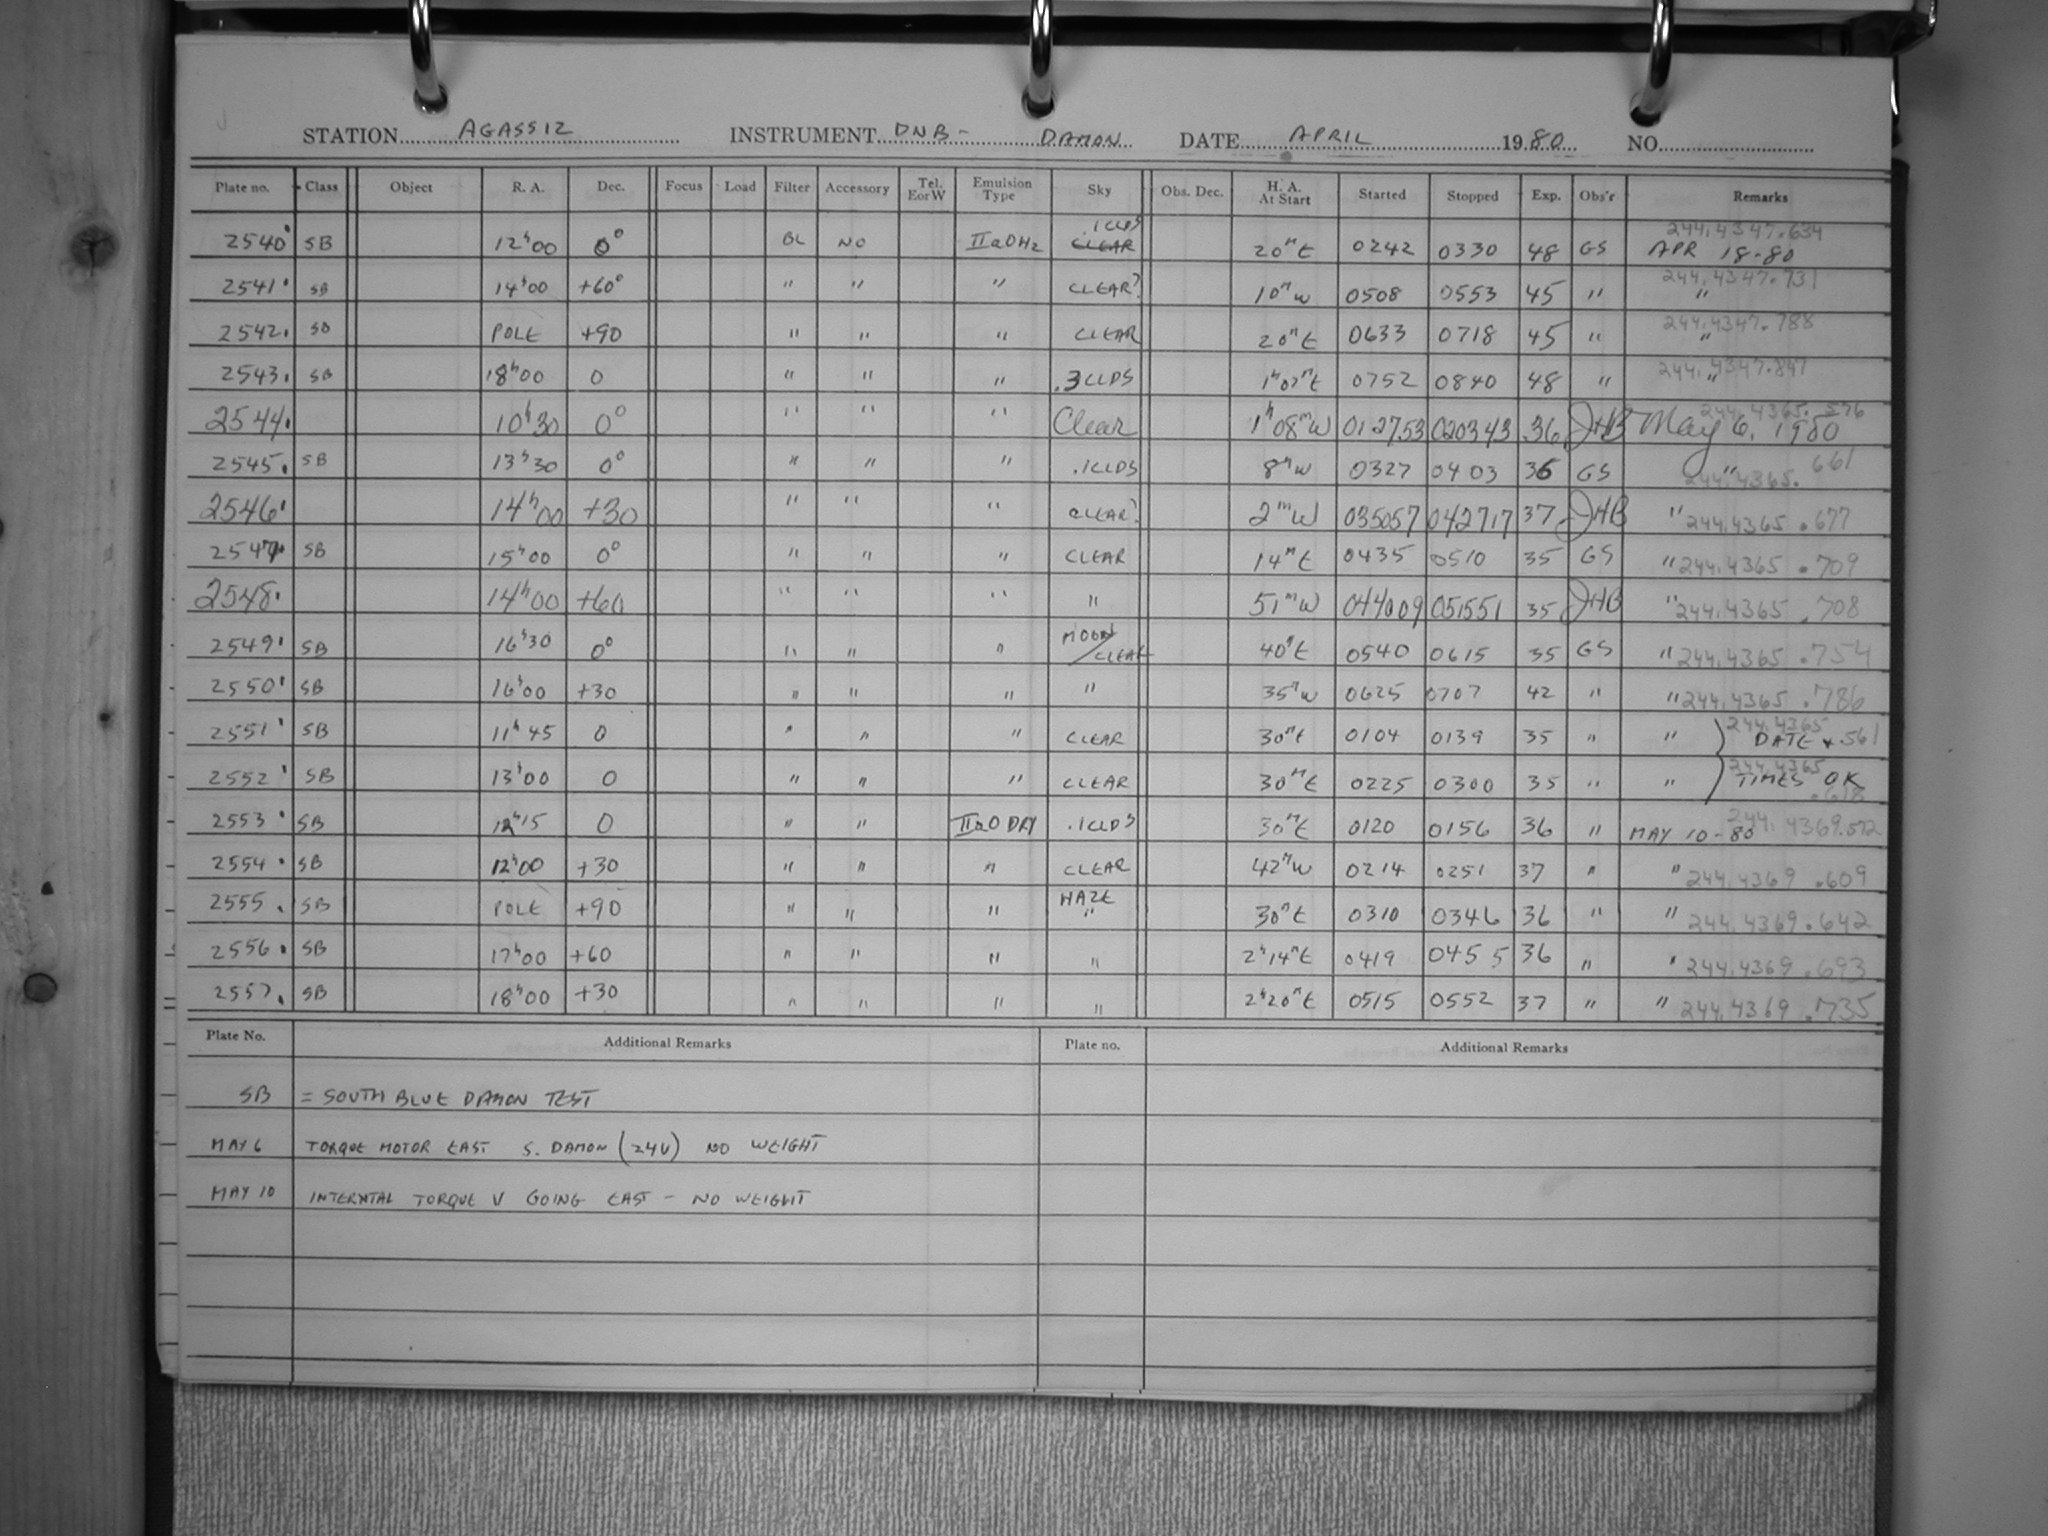 STATION AGASSIZ INSTRUMENT DNB - DAMON DATE APRIL 1980 NO
Plate no. Class Object R. A. Dec. Focus Load Filter Accessory Tel. E or W Emulsion Type Sky Obs. Dec. H. A. At Start Started Stopped Exp. Obs'r Remarks
2540 SB 12h00 0° BL NO IIaOH2 .1CLDS CLEAR 20mE 0242 0330 48 GS 244.4347.634 APR 18-80
2541 SB 14h00 +60° " " " CLEAR? 10mW 0508 0553 45 " 244.4347.731 "
2542 SB POLE +90 " " " CLEAR 20mE 0633 0718 45 " 244.4347.788 "
2543 SB 18h00 0 " " " .3CLDS 1h07mE 0752 0840 48 " 244.4347.847 "
2544 10h30 0° " " " Clear 1h08mW 012753 020343 36 JHB 244.4365.576 May 6, 1980
2545 SB 13h30 0° " " " .1CLDS 8mW 0327 0403 36 GS " 244.4365.661
2546 14h00 +30 " " " CLEAR? 2mW 035057 042717 37 JHB " 244.4365.677
2547 SB 15h00 0° " " " CLEAR 14mE 0435 0510 35 GS " 244.4365.709
2548 14h00 +60 " " " " 51mW 044009 051551 35 JHB " 244.4365.708
2549 SB 16h30 0° " " " MOON/CLEAR 40mE 0540 0615 35 GS " 244.4365.754
2550 SB 16h00 +30 " " " " 35mW 0625 0707 42 " " 244.4365.786
2551 SB 11h45 0 " " " CLEAR 30mE 0104 0139 35 " " 244.4365.561 DATE +
2552 SB 13h00 0 " " " CLEAR 30mE 0225 0300 35 " " 244.4365.618 TIMES OK
2553 SB 12h15 0 " " IIaO DRY .1CLDS 30mE 0120 0156 36 " MAY 10-80 244.4369.572
2554 SB 12h00 +30 " " " CLEAR 42mW 0214 0251 37 " " 244.4369.609
2555 SB POLE +90 " " " HAZE " 30mE 0310 0346 36 " " 244.4369.642
2556 SB 17h00 +60 " " " " 2h14mE 0419 0455 36 " " 244.4369.693
2557 SB 18h00 +30 " " " " 2h20mE 0515 0552 37 " " 244.4369.735
Plate No. Additional Remarks Plate no. Additional Remarks
SB = SOUTH BLUE DAMON TEST
MAY 6 TORQUE MOTOR EAST S. DAMON (24V) NO WEIGHT
MAY 10 TORQUE V GOING EAST - NO WEIGHT